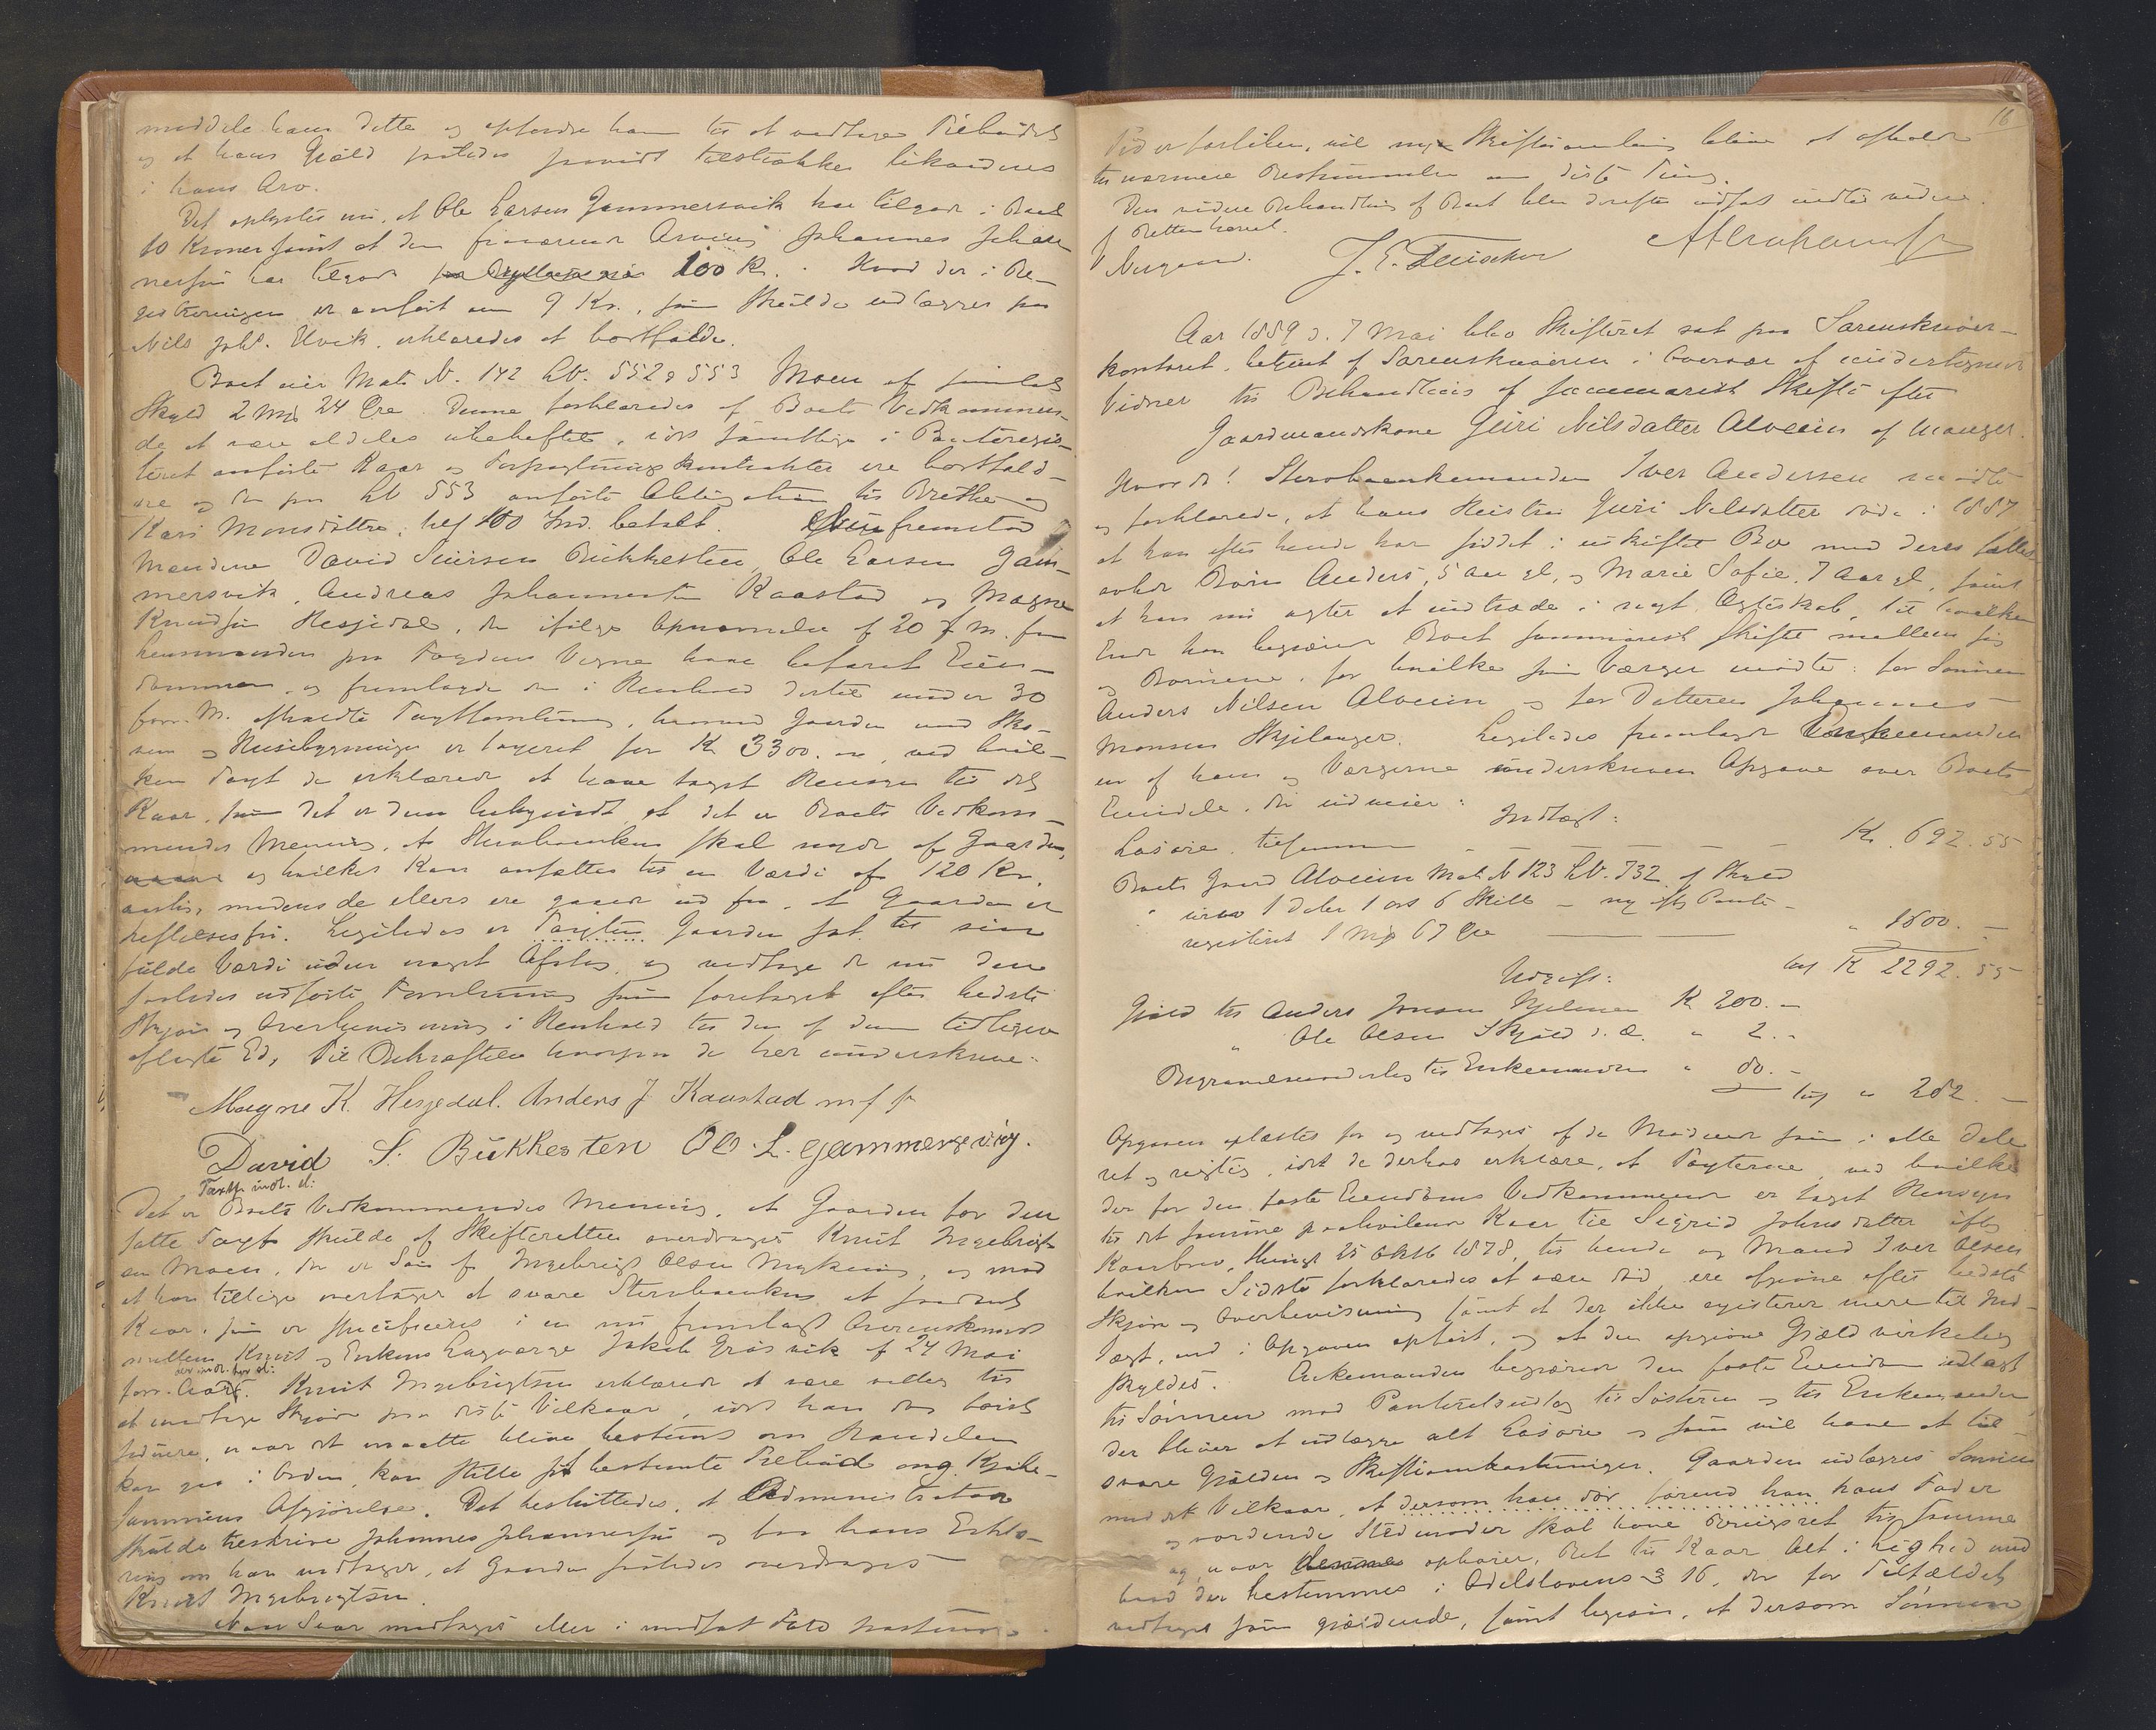 meddele ham dette og opfordre ham til at vedtage Tilbudet
og at hans Gjæld saaledes forvidt tilstrække likvideres
i hans Arv.
Det oplystes nu, at Ole Larsen Gammersvik har tilgode i Boet
10 Kroner samt at den fraværende Arving Johannes Johan-
nessen har tilgode 100 Kr. Hvad der i Re-
gistreringen er anført om 9 Kr., som skulde udlægges paa
Nils Johs. Utvik, erklæredes at bortfalde.
Boet eier Mat. N. 142 Lb. 552 & 553 Moen af samlet
Skyld 2 Mrk 24 Øre. Denne forklaredes af Boets Vedkommen-
de at være aldeles ubeheftet, idet samtlige i Panteregis-
teret anførte Kaar og Forpagtningskontrakter ere bortfald-
ne og den paa Lb 553 anførte Obligation til Brethe og
Kari Monsdøttre, hel 100 Spd. betalt. fremstod
Mændene David Siursen Bukkesten, Ole Larsen Gam-
mersvik, Andreas Johannessen Kaastad og Magne
Knudsen Hesjedal, der ifølge Opnævnelse af 20 f. M. fra
Lensmanden paa Fogdens Vegne have befaret Eien-
dommen, og fremlagde en i Henhold dertil under 30
forr. M. afholdte Taxtforretning, hvorved Gaarden med Sko-
ven og Husebygninger er taxeret for Kr 3300.00, ved hvil-
ken Taxt de erklærede at have taget Hensyn til det
Kaar, som det er dem bekjendt, at det er Boets Vedkom-
mendes Mening, at Sterbøenken skal nyde af Gaarden,
og hvilket Kaar ansættes til en Værdi af 120 Kr.
aarlig, medens de ellers ere gaaede ud fra, at Gaarden er
heftelsesfri. Ligeledes er Taxten Gaarden sat til sin
fulde Værdi uden noget Afslag, og vedtage de nu den
saaledes udførte Forretning som foretaget efter bedste
Skjøn og Overbevisning i Henhold til den af dem tidligere
aflagte Ed. Til Bekræftelse hvorpaa de her underskrive:
Magne K. Hesjedal. Anders J Kaastad m f p
David S. Bukkesten Ole L. Gammersvig.
Taxtf. indt. d:
Det er Boets Vedkommendes Mening, at Gaarden for den
satte Taxt skulde af Skifteretten overdrages Knut Ingebrigt-
sen Moen, der er Søn af Ingebrigt Olsen Myking, og mod
at han tillige overtager at svare Sterbøenken et saadant
Kaar, som er specificeret i en nu fremlagt Overenskomst
mellem Knut og Enkens Lagværge Jakob Gråsvik af 24 Mai
forr. Aar. Knut Ingebrigtsen erklærede at være villig til
at modtage Skjøde paa disse Vilkaar, idet han dog først
senere, naar det maatte blive bestemt om Handelen
kan gaa i Orden, kan stille sit bestemte Tilbud ang. Kjøbe-
summens Afgjørelse. Det besluttedes, at Administrator
skulde tilskrive Johannes Johannessen og bede hans Erklæ-
ring om han vedtager, at Gaarden saaledes overdrages
Knut Ingebrigtsen.
Naar Svar modtages eller i modsat Fald
16
Tid er forløben, vil nye Skiftesamling blive at afholde
til nærmere Bestemmelse om disse Ting.
Den videre Behandling af Boet blev derefter udsat indtil videre.
Retten hævet.
Nergaard. J. E. Fleischer A Abrahamsen
Aar 1889 d. 7 Mai blev Skifteret sat paa Sorenskriver-
kontoret, betjent af Sorenskriveren i Overvær af undertegnede
Vidner til Behandling af summarisk Skifte efter
Gaardmandskone Guri Nilsdatter Alveim af Manger.
Hvorda! Sterboenkemanden Iver Andersen mødte
og forklarede, at hans Hustru Guri Nilsdatter døde i 1887,
at han efter hende har siddet i uskiftet Bo med deres fælles
avlede Børn Anders, 5 Aar gl., og Marie Sofie, 7 Aar gl., samt
at han nu agter at indtræde i nyt Ægteskab, til hvilken
Ende han begjærer Boet summarisk skifte mellem sig
og Børnene, for hvilke som Værger mødte: for Sønnen
Anders Nilsen Alveim og for Datteren Johannes
Monsen Skjelanger. Ligeledes fremlagde Enkemanden
en af ham og Værgerne underskreven Opgave over Boets
Eiendele, der udviser:
Indtægt:
Løsøre tilsammen Kr. 692.55
Boets Gaard Alveim Mat. N 123 Lb. 732 af Skyld
urev. 1 Daler 1 ort 6 Skill - ny efter Pante-
registeret 1 Mrk 67 Øre " 1600. -
tils Kr 2292.55
Udgift:
Gjæld til Anders Jonsen Hjelmen Kr 200. -
" Ole Olsen Skjold s. Æ. " 2. -
Begravelsesudlæg til Enkemanden " 80. -
tils " 282. -
Opgaven oplæstes for og vedtoges af de Mødende som i alle Dele
ret og rigtig, idet de derhos erklære, at Taxterne, ved hvilke
der for den faste Eiendoms Vedkommende er taget Hensyn
til det samme paahvilende Kaar til Sigrid Johnsdatter efter
Kaarbrev, thinglt 25 Oktb 1878, til hende og Mand Iver Olsen
hvilken Sidste forklaredes at være død, ere afgivne efter bedste
Skjøn og Overbevisning samt at der ikke existerer mere til Ind-
tægt, end i Opgaven opført, og at den opgivne Gjæld virkelig
skyldes. Enkemanden begjærer den faste Eiendom udlagt
til Sønnen mod Panteretsudlæg til Søsteren og til Enkemanden,
der bliver at udlægge alt Løsøre og som vil have at til-
svare Gjælden og Skifteomkostninger. Gaarden udlægges Sønnen
med det Vilkaar, at dersom han dør førend han hans Fader
og vordende Stedmoder skal have Brugsret til samme
og, naar denne ophører, Ret til Kaar Alt i Lighed med
hvad der bestemmes i Odelslovens § 16, der for Tilfældet
vedtages som gjældende, samt ligesaa, at dersom Sønnen